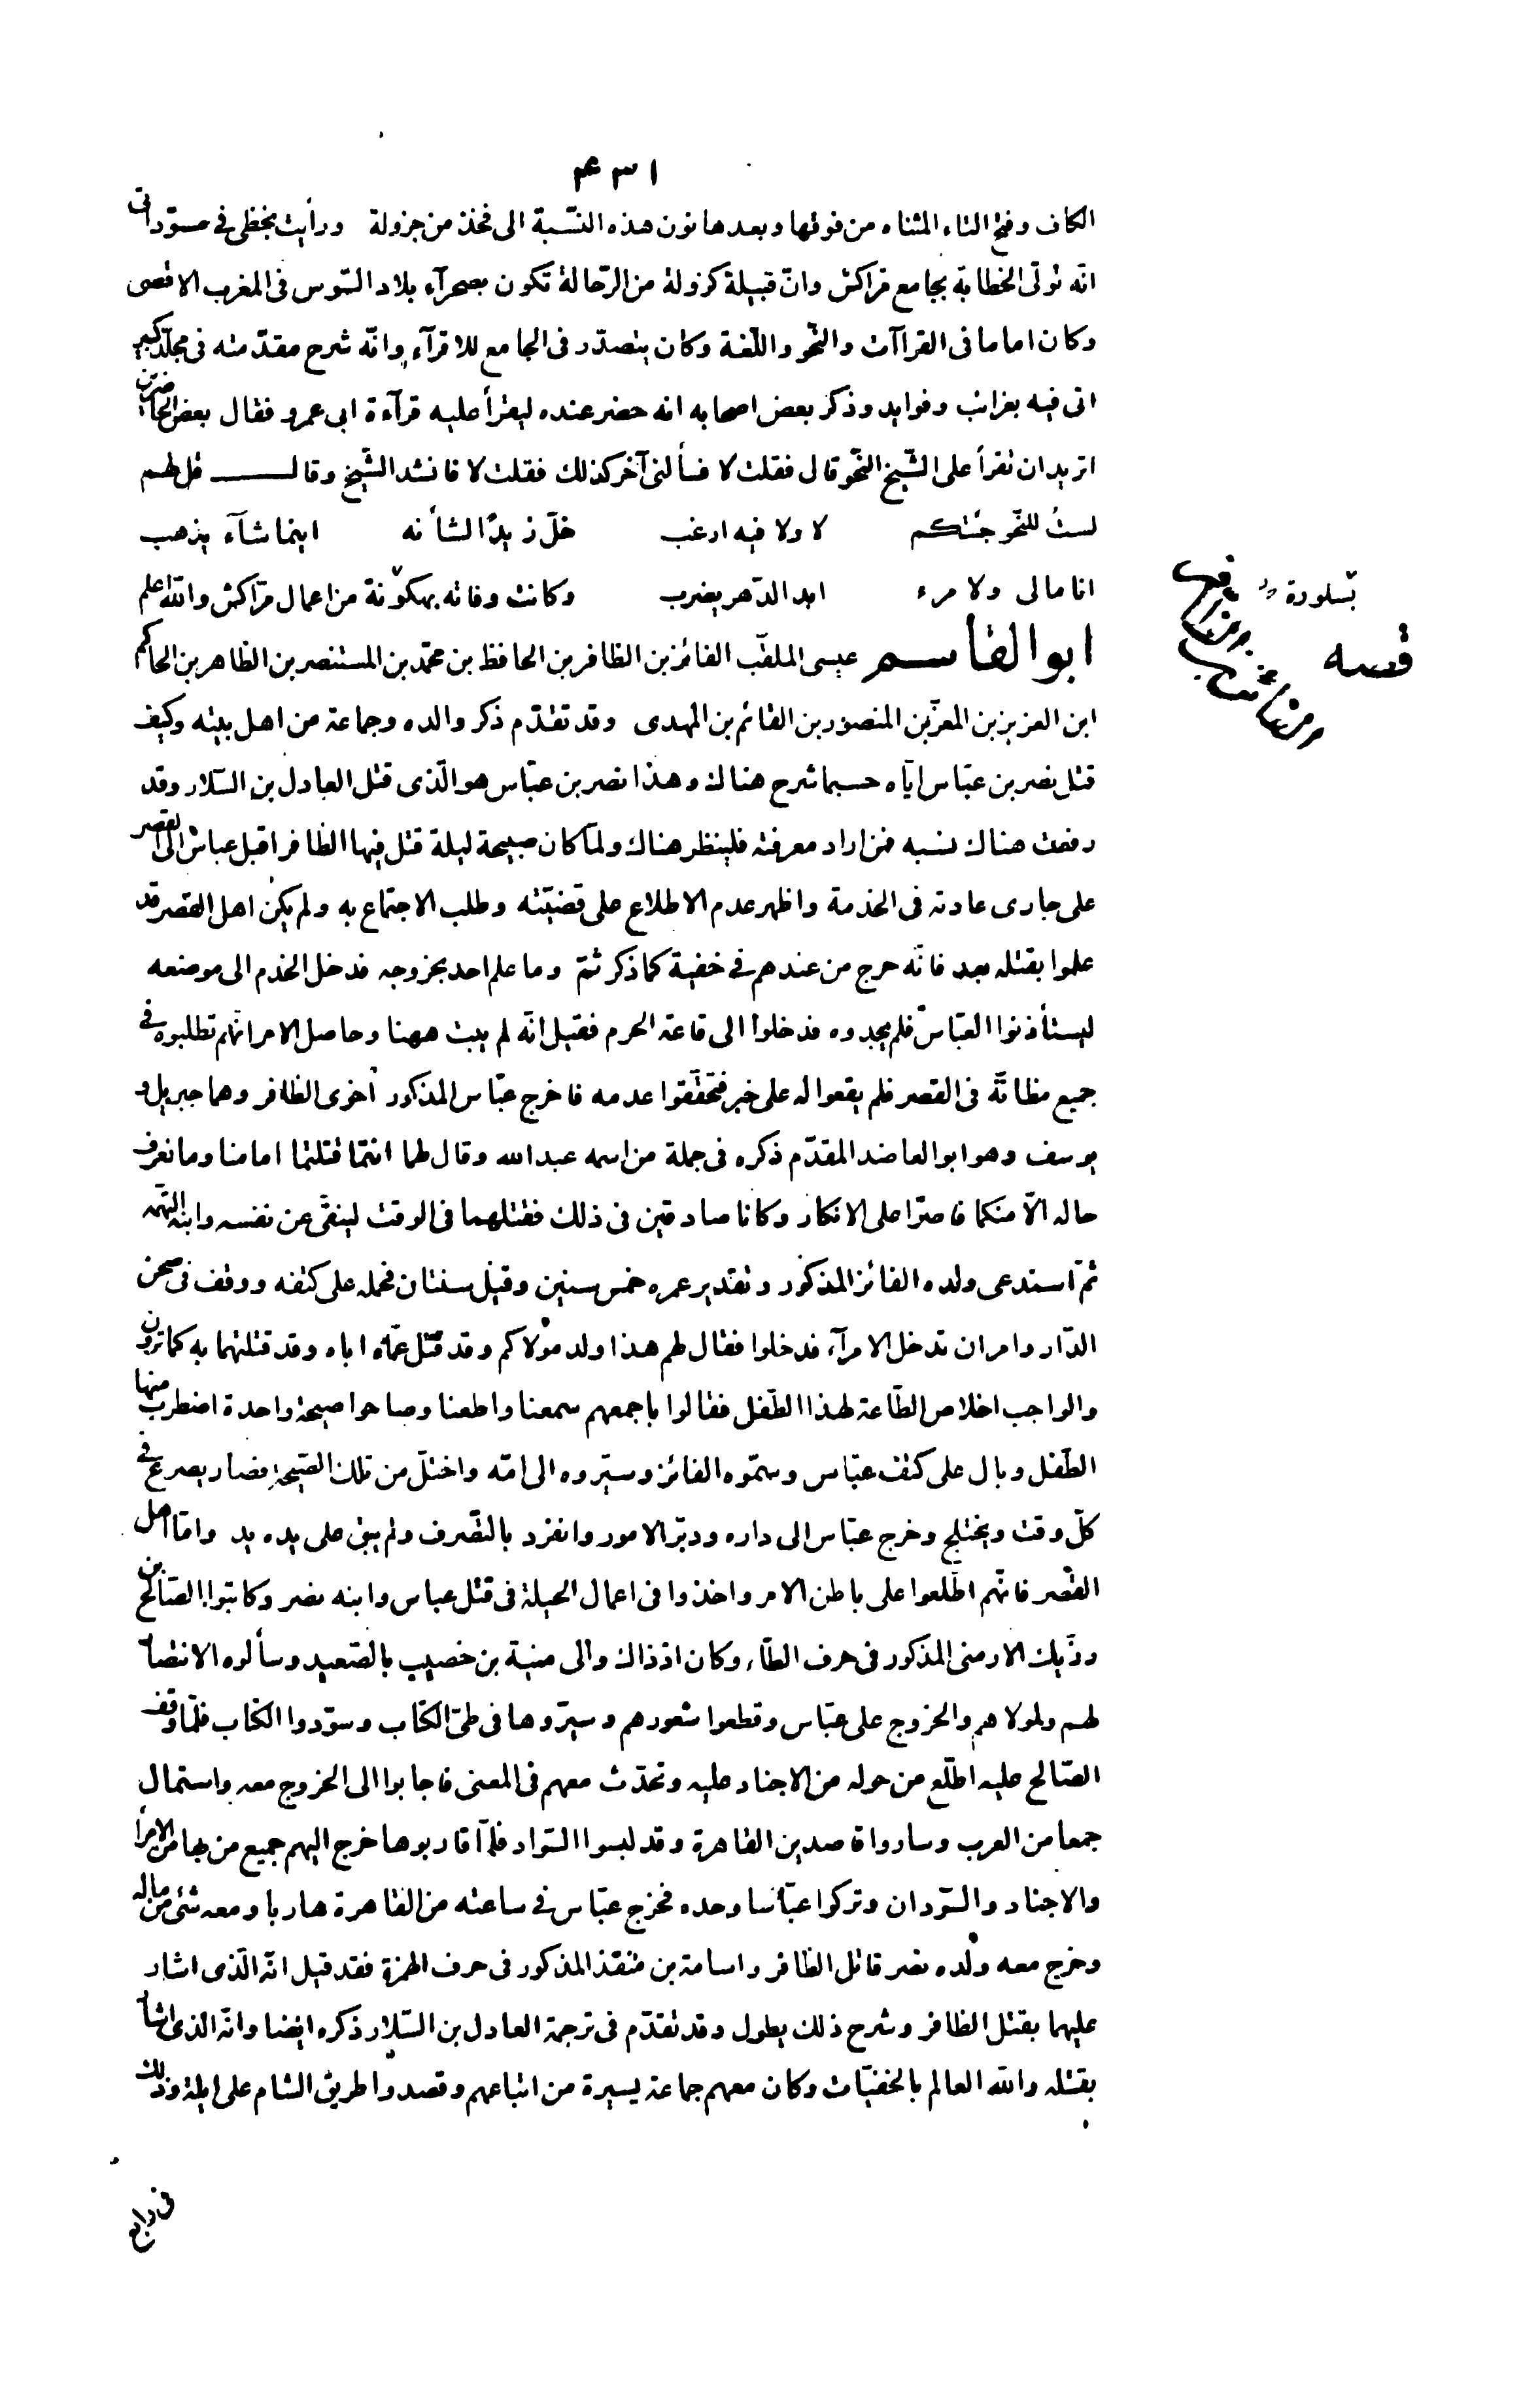 ٤٣١
الكاف وفتح التاء المثناه من فوقها وبعدها نون هذه النّسبة الى فخذ من جزولة ورأيت بخطى فى مسوّداتى
انّه تولّى الخطابة بجامع مرّاكش وانّ قبيلة كزولة من الرّحالة تكون بصحرآء بلاد السّوس فى المغرب الاقصى
وكان اماما فى القراآت والنّحو واللّغة وكان يتصدّر فى الجامع للاقرآء وانّه شرح مقدّمته فى مجلّد كبير
اتى فيه بغرائب وفوايد وذكر بعض اصحابه انه حضر عنده ليقرأ عليه قرآءة ابى عمرو فقال بعض الحاضرين
اتريد ان تقرأ على الشّيخ النّحو قال فقلت لا فسألنى آخر كذلك فقلت لا فانشد الشّيخ وقال قل لهم
لستُ للنّحو جئتكم لا ولا فيه ارغب خلّ زيدًا لشأنه اينما شآء يذهب
انا مالى ولامرء ابد الدّهر يضرب وكانت وفاته بهكوّنة من اعمال مرّاكش واللّه اعلم
ابو القاسم عيسى الملقّب الفائز بن الظافر بن الحافظ بن محمّد بن المستنصر بن الظاهر بن الحاكم
ابن العزيز بن المعزّ بن المنصور بن القائم بن المهدى وقد تقدّم ذكر والده وجماعة من اهل بيته وكيف
قتل نصر بن عبّاس ايّاه حسبما شرح هناك وهذا نصر بن عبّاس هو الّذى قتل العادل بن السّلار وقد
رفعت هناك نسبه فمن اراد معرفته فلينظر هناك ولمّا كان صبيحة ليلة قتل فيها الظافر اقبل عباس الى القصر
على جارى عادته فى الخدمة واظهر عدم الاطلاع على قضيّته وطلب الاجتماع به ولم يكن اهل القصر قد
علموا بقتله بعد فانّه خرج من عندهم فى خفية كما ذكر ثمّ وما علم احد بخروجه فدخل الخدم الى موضعه
ليستأذنوا العبّاس فلم يجدوه فدخلوا الى قاعة الحرم فقيل انّه لم يبت ههنا وحاصل الامر انّهم تطلبوه فى
جميع مظانّه فى القصر فلم يقعوا له على خبر فتحقّقوا عدمه فاخرج عبّاس المذكور اخوى الظافر وهما جبريل و
يوسف وهو ابو العاضد المقدّم ذكره فى جملة من اسمه عبد الله وقال لهما انتما قتلتما امامنا وما نعرف
حاله الّا منكما فاصرّا على الانكار وكانا صادقين فى ذلك فقتلهما فى الوقت لينفى عن نفسه وابنه التّهمة
ثمّ استدعى ولده الفائز المذكور وتقدير عمره خمس سنين وقيل سنتان فحمله على كتفه ووقف فى صحن
الدّار وامر ان تدخل الامرآء فدخلوا فقال لهم هذا ولد مولاكم وقد قتل عمّاه اباه وقد قتلتهما به كما ترون
والواجب اخلاص الطّاعة لهذا الطّفل فقالوا باجمعهم سمعنا واطعنا وصاحوا صيحة واحدة اضطرب منها
الطّفل وبال على كتف عبّاس وسمّوه الفائز وسيّروه الى امّه واختلّ من تلك الصّيحة فصار يصرع فى
كلّ وقت ويختلج وخرج عبّاس الى داره ودبّر الامور وانفرد بالتّصرف ولم يبق على يده يد وامّا اهل
القصر فانّهم اطّلعوا على باطن الامر واخذوا فى اعمال الحيلة فى قتل عباس وابنه نصر وكاتبوا الصّالح بن
رزّيك الارمنى المذكور فى حرف الطّاء وكان اذذاك والى منية بن خصيب بالصّعيد وسألوه الانتصار
لهم ولمولاهم والخروج على عبّاس وقطعوا شعورهم وسيّروها فى طىّ الكتّاب وسوّدوا الكتاب فلمّا وقف
الصّالح عليه اطّلع من حوله من الاجناد عليه وتحدّث معهم فى المعنى فاجابوا الى الخروج معه واستمال
جمعا من العرب وساروا قاصدين القاهرة وقد لبسوا السّواد فلمّا قاربوها خرج اليهم جميع من بها من الامرآ
والاجناد والسّودان وتركوا عبّاسا وحده فخرج عبّاس فى ساعته من القاهرة هاربا ومعه شئ من ماله
وخرج معه ولده نصر قاتل الظافر واسامة بن منقذ المذكور فى حرف الهمزة فقد قيل انّه الّذى اشار
عليهما بقتل الظافر وشرح ذلك يطول وقد تقدّم فى ترجمة العادل بن السّلار ذكره ايضا وانّه الذى اشا
بقتله واللّه العالم بالخفيّات وكان معهم جماعة يسيرة من اتباعهم وقصدوا طريق الشام على ايلة وذلك
قصه